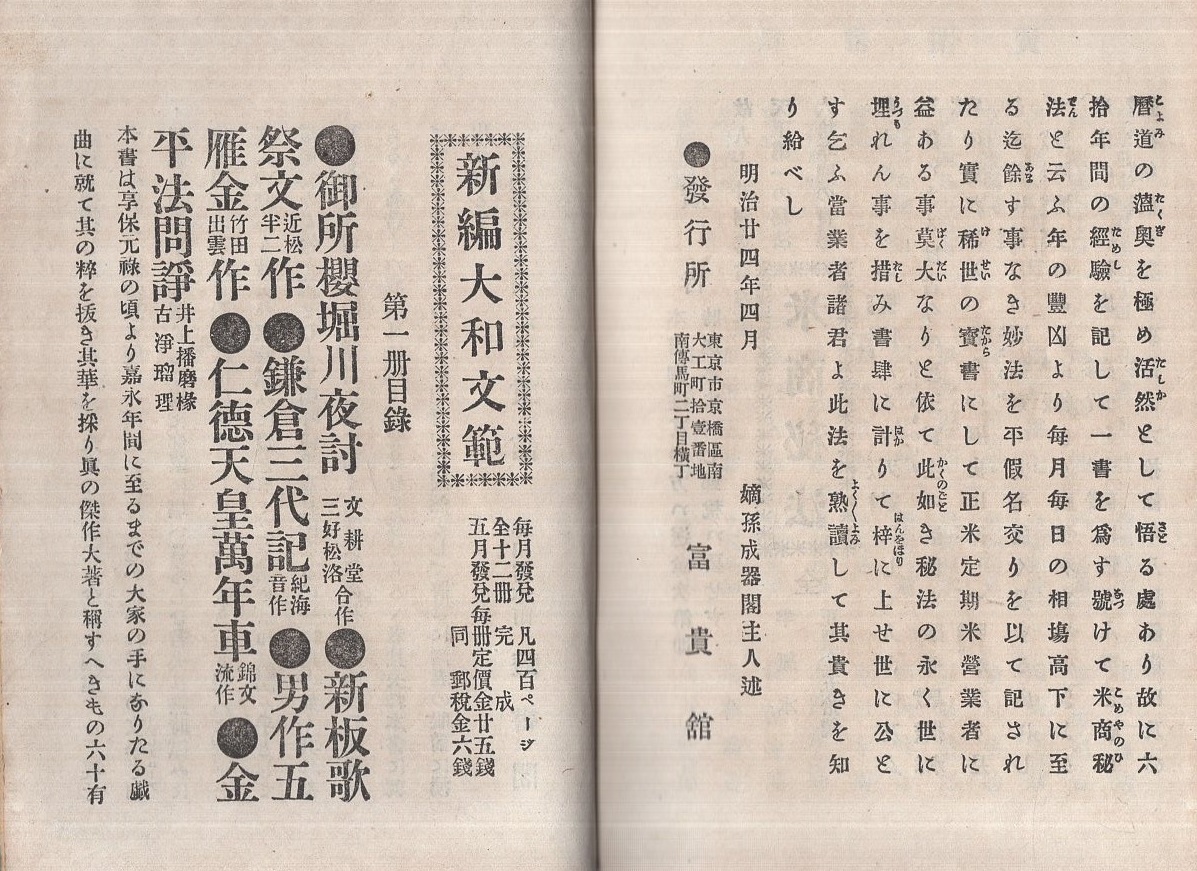 暦道の薀奥を極め活然として悟る處あり故に六
拾年間の經驗を記して一書を爲す號けて米商秘
法と云ふ年の豐凶より毎月毎日の相塲高下に至
る迄餘す事なき妙法を平假名交りを以て記され
たり實に稀世の寳書にして正米定期米營業者に
益ある事莫大なりと依て此如き秘法の永く世に
埋れん事を措み書肆に計りて梓に上せ世に公と
す乞ふ當業者諸君よ此法を熟讀して其貴きを知
り給べし
明治廿四年四月 嫡孫成器閣主人述
●發行所
東京市京橋區南
大工町拾壹番地
南傳馬町二丁目橫丁
富貴舘
新編大和文範
毎月發兌 凡四百ページ
全十二冊 完成
五月發兌毎冊定價金廿五錢
同 郵稅金六錢
第一冊目錄
●御所櫻堀川夜討 文耕堂 三好松洛 合作 ●新板歌
祭文 近松半二 作 ●鎌倉三代記 紀海音作 ●男作五
雁金 竹田出雲 作 ●仁德天皇萬年車 錦文流作 ●金
平法問諍 井上播磨椽 古淨瑠理
本書は享保元祿の頃より嘉永年間に至るまでの大家の手になりたる戯
曲に就て其の粹を抜き其華を採り眞の傑作大著と稱すへきもの六十有